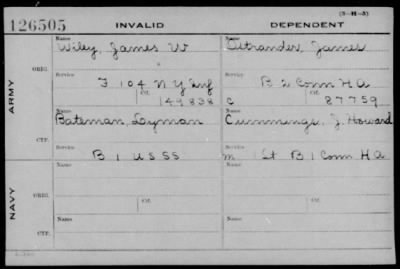 (3-H-3)
126505 INVALID DEPENDENT
Name Name
Wiley, James W Ostrander, James
ORIG.
Service Service
F 104 N Y Inf B 2 Conn H A
Ctf. Ctf.
149838 C 87759
ARMY
Name Name
Bateman, Layman Cummings, J. Howard
CTF.
Service Service
B 1 U S S S m 1 Lt B 1 Conn H A
Name Name
ORIG.
Service Service
Ctf. Ctf.
NAVY
Name Name
CTF.
Service Service